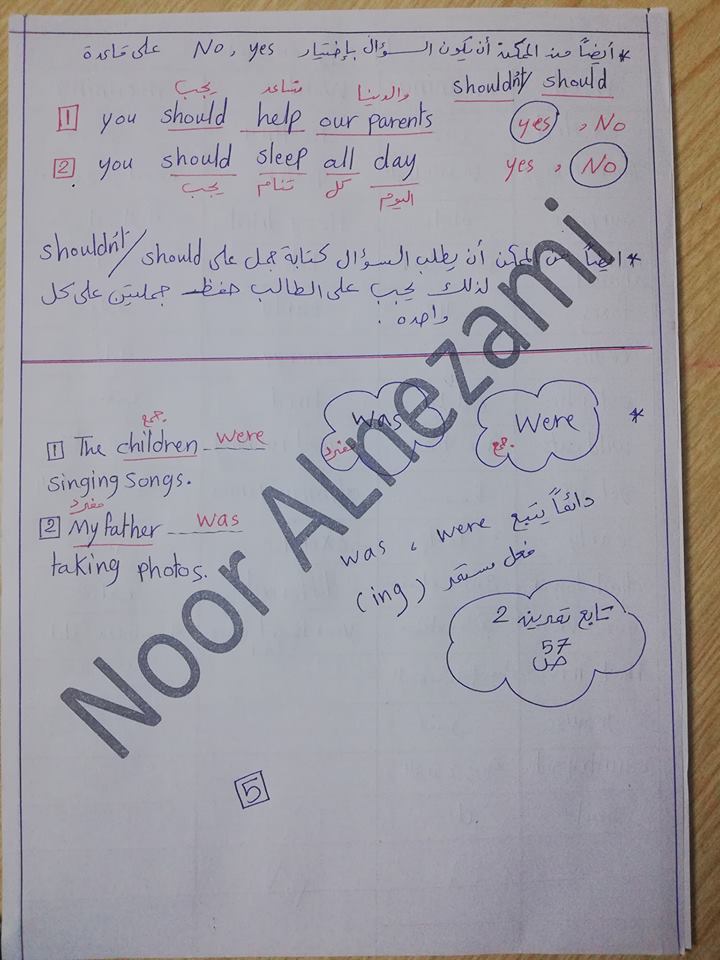 * أيضاً من الممكن أن يكون السؤال بإختيار No, yes على قاعدة
shouldn't / should
يجب تساعد والدينا
1 you should help our parents yes , No
2 you should sleep all day yes , No
يجب تنام كل اليوم
* ايضاً من الممكن أن يطلب السؤال كتابة جمل على should / shouldn't
لذلك يجب على الطالب حفظ جملتين على كل
واحدة .
* Were جمع
was مفرد
جمع
1 The children were
singing songs.
مفرد
2 My father was
taking photos.
دائماً يتبع was , were
فعل مستمر (ing)
تابع تمرين 2
ص 57
5
Noor ALnezami